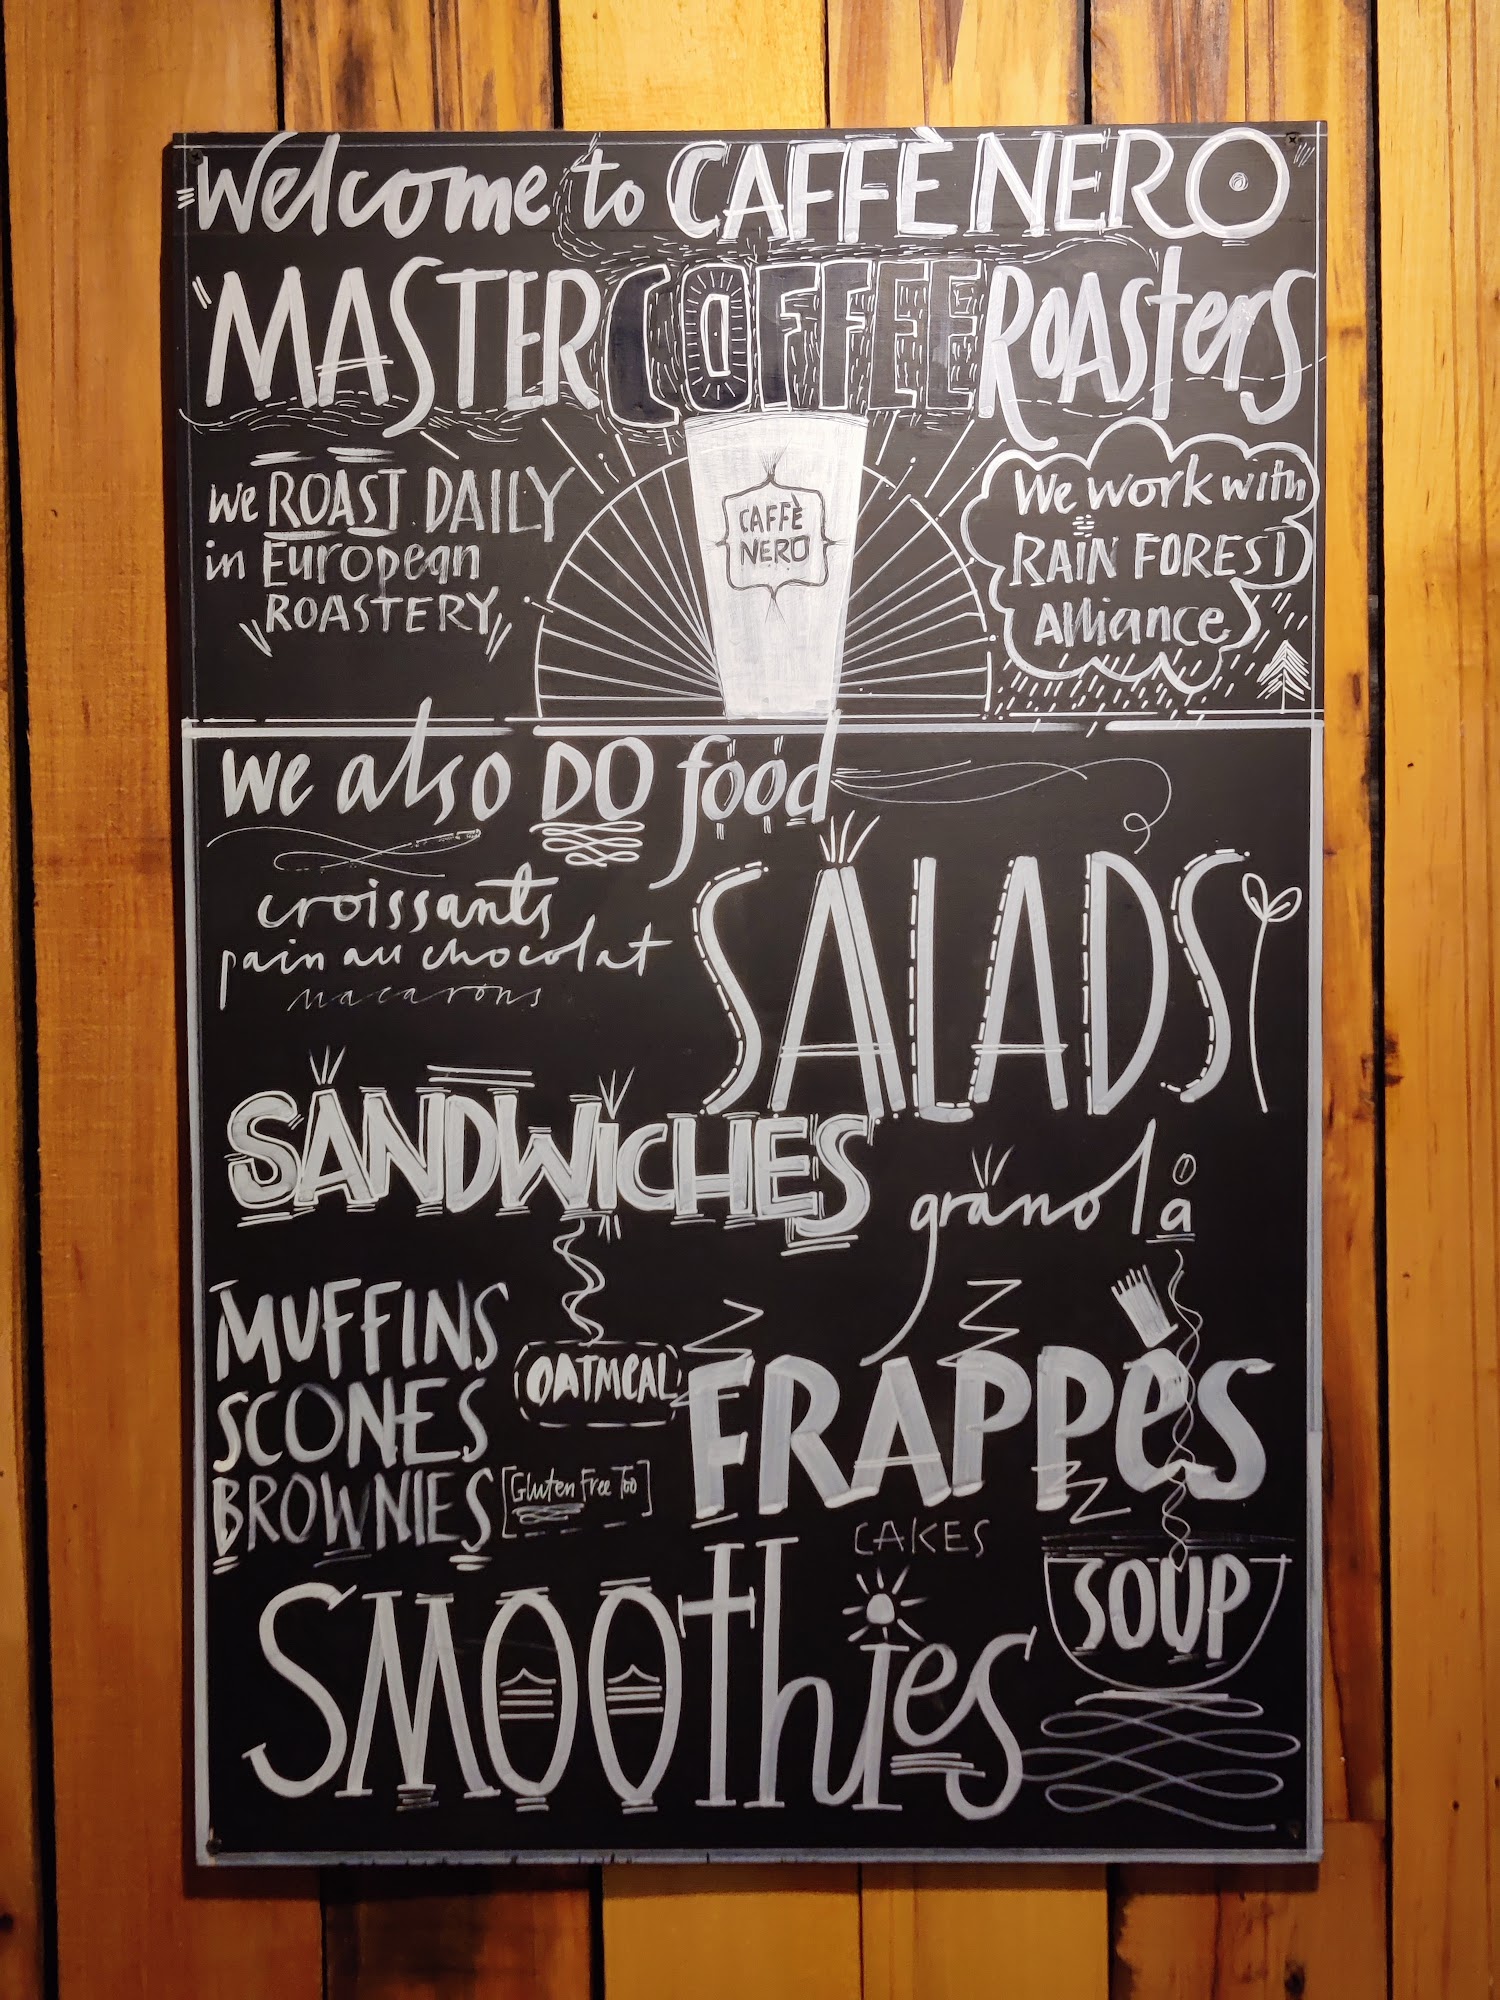 Welcome to CAFFÈ NERO
MASTER COFFEE ROASters
we ROAST DAILY
in European
ROASTERY
CAFFÈ
NERO
We work with
RAIN FOREST
Alliance
we also DO food
croissants
pain au chocolat
macarons
SALADS
SANDWiCHES
granola
MUFFINS
SCONES
BROWNIES
OATMEAL
[Gluten Free Too]
FRAPPÈS
CAKES
SMOOthies
SOUP